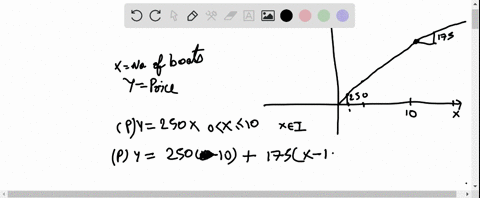 X = No of boats
Y = Price
(P) Y = 250X 0 < X ≤ 10 X ∈ I
(P) Y = 250( -10) + 175(X-1
175
250
10
X